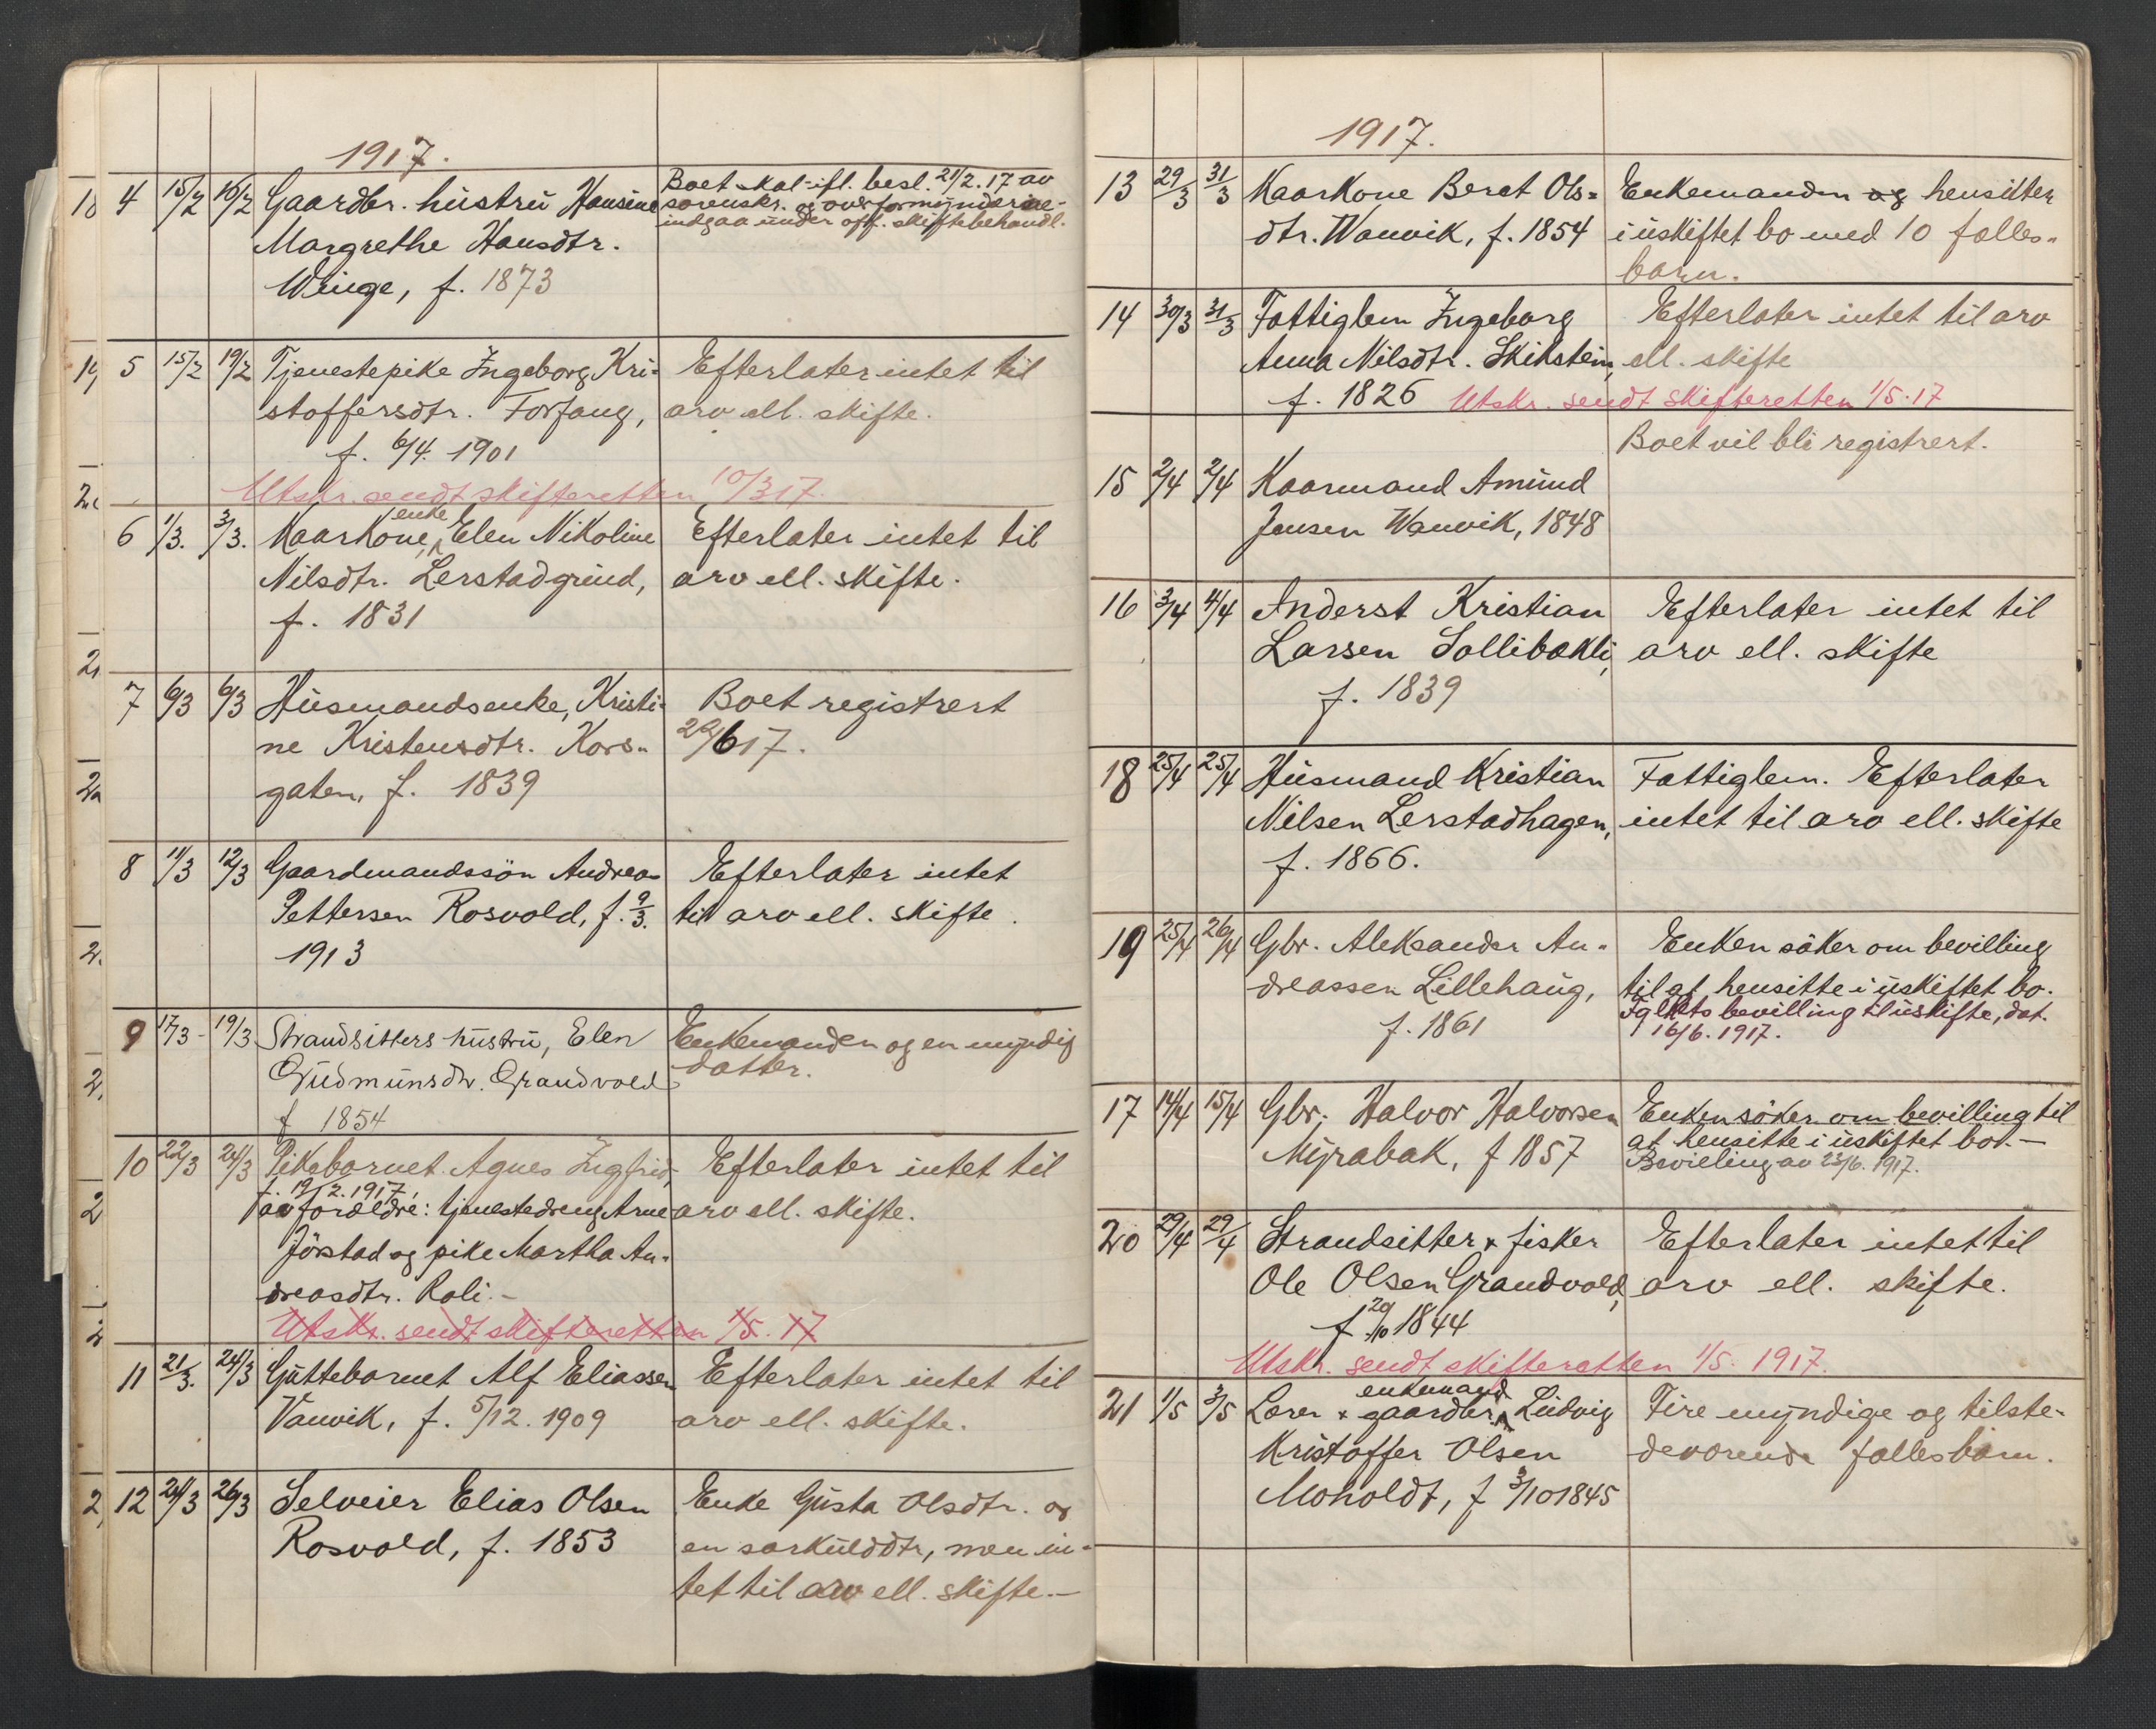 1917.
4 15/2 16/2 Gaardbr. hüstrü Hansine Boet skal ifl. besl. 21/2.17 av
sorenskr. og overformynderne
Margrethe Hansdtr. indgaa ünder off. skiftebehandl.
Winge, f. 1873
5 15/2 19/2 Tjenestepike Ingeborg Kri- Efterlater intet til
stoffersdtr. Forfang, arv ell. skifte.
f. 6/4. 1901
Utskr. sendt skifteretten 10/3 17.
6 1/3. 3/3. Kaarkone, enke Elen Nikoline Efterlater intet til
Nilsdtr. Lerstadgrind, arv ell. skifte.
f. 1831
7 6/3 6/3 Hüsmandsenke, Kristi- Boet registrert
ne Kristensdtr. Kors- 22/6 17.
gaten, f. 1839
8 11/3 12/3 Gaardmandssön Andreas Efterlater intet
Pettersen Rosvold, f. 9/3. til arv ell. skifte.
1913
9 17/3 - 19/3 Strandsitters hüstrü, Elen Enkemanden og en myndig
Güdmünsdtr. Grandvold datter.
f 1854
10 22/3 24/3 Pikebarnet Agnes Ingfrid, Efterlater intet til
f. 19/2. 1917,
av forældre: tjenestedreng Arne arv ell. skifte.
Jörstad og pike Martha An-
dreasdtr. Roli.-
Utskr. sendt skifteretten 1/5. 17
11 21/3. 24/3 Güttebarnet Alf Eliassen Efterlater intet til
Vanvik, f. 5/12. 1909 arv ell. skifte.
12 24/3 26/3 Selveier Elias Olsen Enke Güsta Olsdtr. og
Rosvold, f. 1853 en særkülddtr, men in-
tet til arv ell. skifte.-
1917.
13 29/3 31/3 Kaarkone Beret Ols= Enkemanden og hensitter
dtr. Wanvik, f. 1854 i üskiftet bo med 10 fælles-
barn.
14 30/3 31/3 Fattiglem Ingeborg Efterlater intet til arv
Anna Nilsdtr. Skikstein, ell. skifte
f. 1826 Utskr. sendt skifteretten 1/5.17
Boet vil bli registrert.
15 2/4 2/4 Kaarmand Amünd
Jensen Wanvik, 1848
16 3/4 4/4 Inderst Kristian Efterlater intet til
Larsen Sollibakli, arv ell. skifte
f. 1839
18 25/4 25/4 Hüsmand Kristian Fattiglem. Efterlater
Nilsen Lerstadhagen, intet til arv ell. skifte
f. 1866.
19 25/4 26/4 Gbr. Aleksander An- Enken söker om bevilling
dreassen Lillehaüg, til at hensitte i üskiftet bo.
f. 1861 bevilling til üskifte, dat.
16/6. 1917.
17 14/4 15/4 Gbr. Halvor Halvorsen Enken söker om bevilling til
at hensitte i üskiftet bo.-
Myrabak, f 1857 Bevilling av 23/6. 1917.
20 29/4 29/4 Strandsitter & fisker Efterlater intet til
Ole Olsen Grandvold, arv ell. skifte.
f 29/10 1844
Utskr. sendt skifteretten 1/5. 1917.
21 1/5 3/5 Lærer & gaardbr. enkemand Lüdvig Fire myndige og tilste-
Kristoffer Olsen deværende fællesbarn.
Moholdt, f 3/10 1845